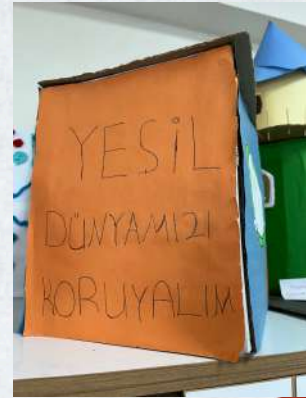 YESİL
DÜNYAMIZI
KORUYALIM